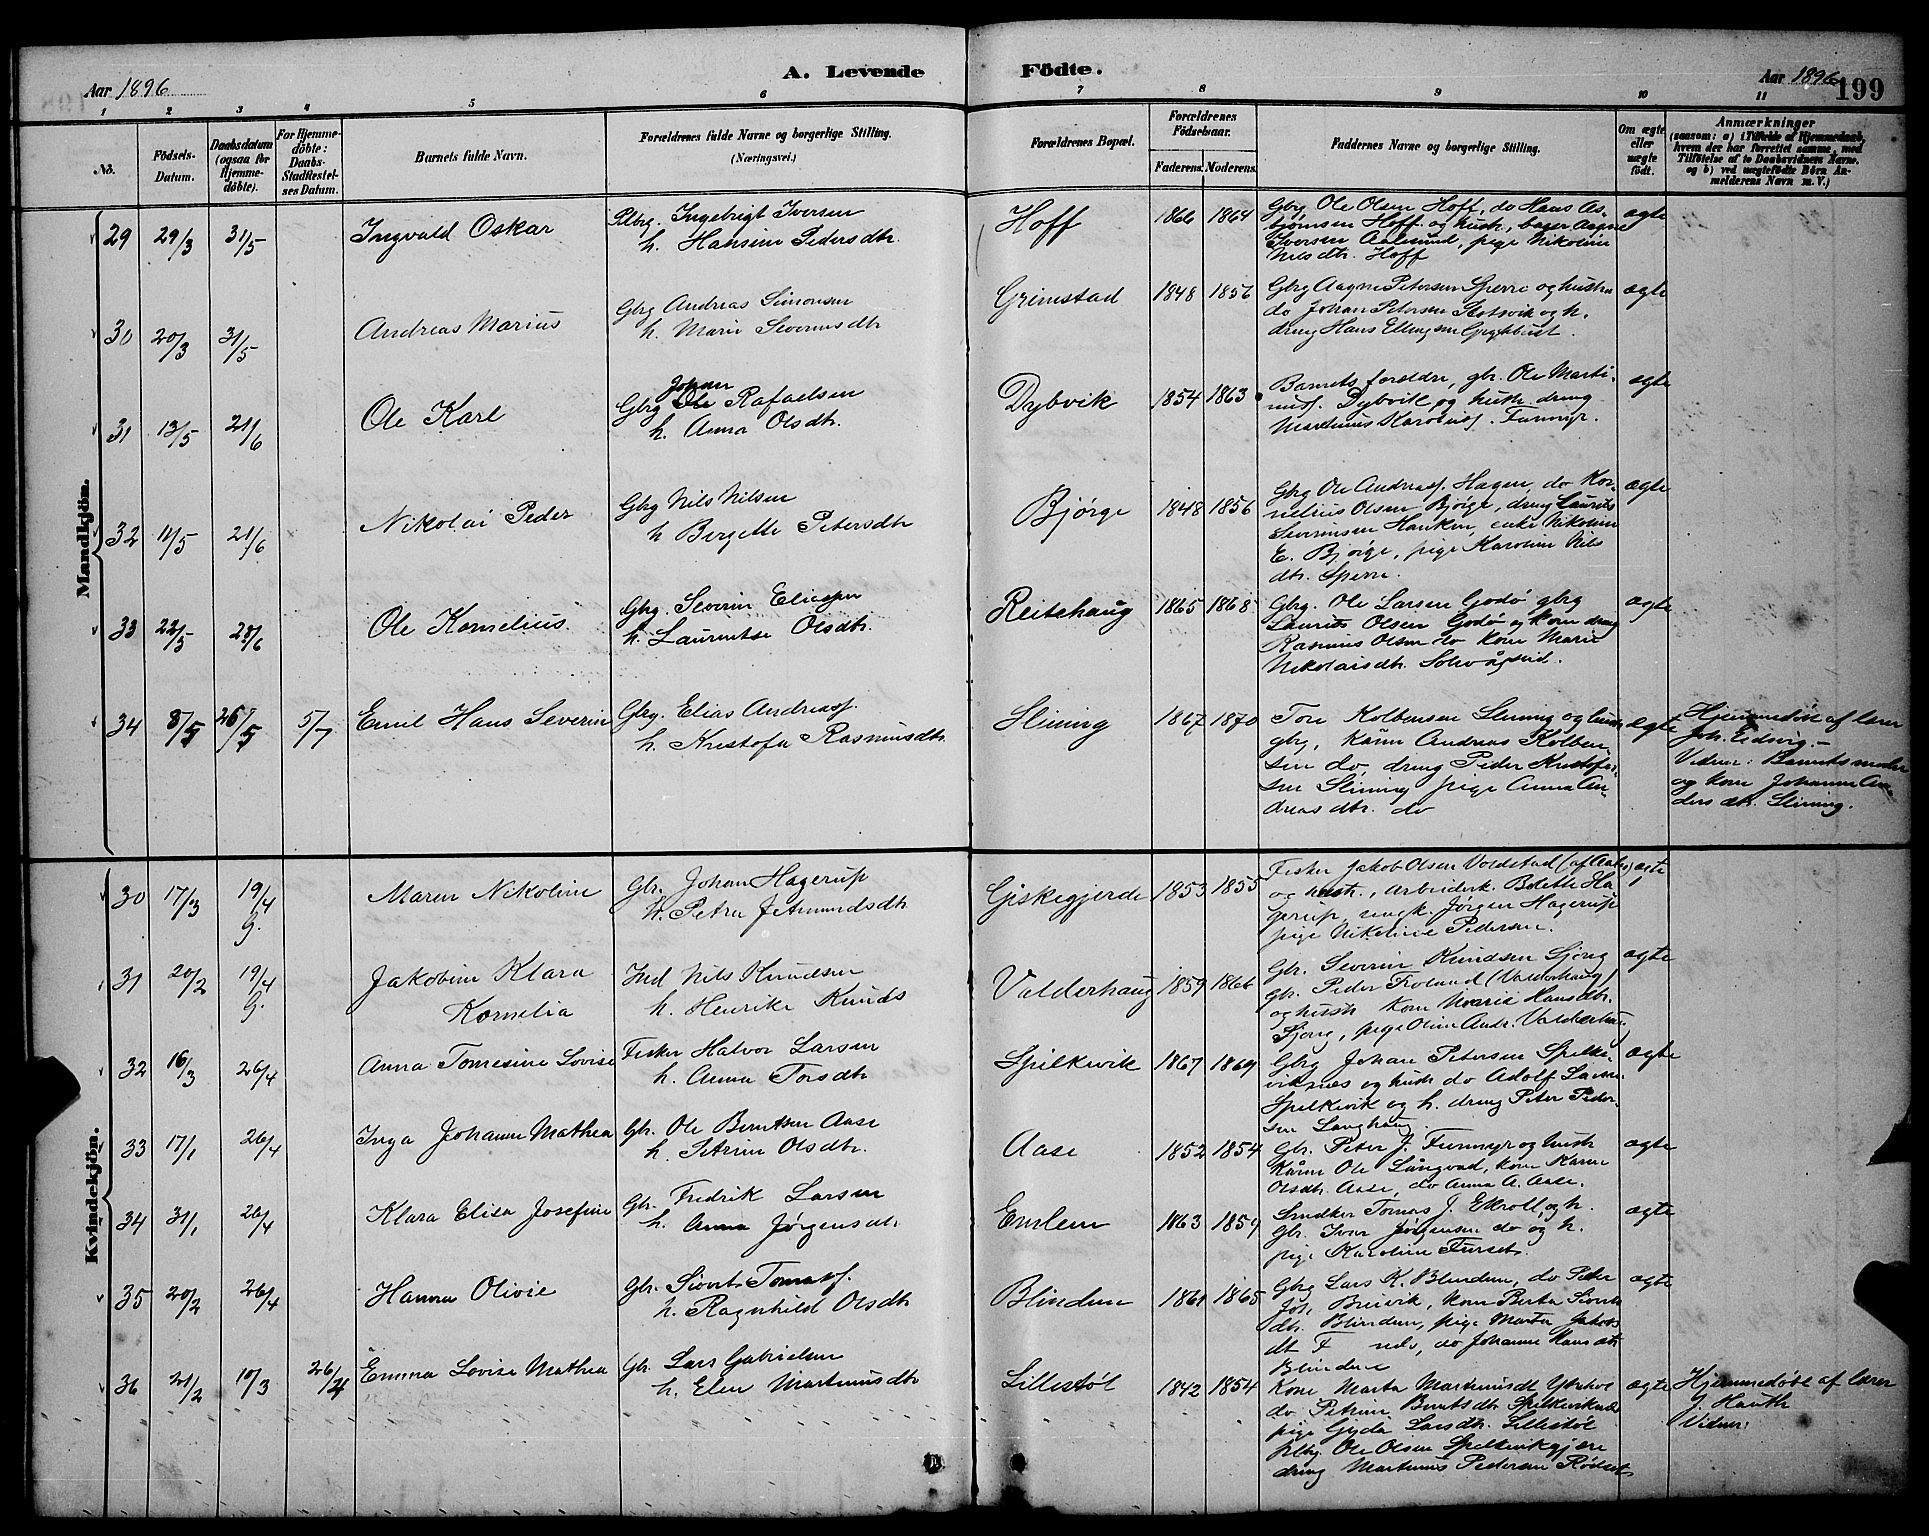 Aar 1896
A. Levende Födte.
Aar 1896
199
1 2 3 4 5 6 7 8 9 10 11
No.
Födsels-Datum.
Daabsdatum (ogsaa for Hjemme-döbte).
For Hjemme-döbte: Daabs-Stadfæstel-ses Datum.
Barnets fulde Navn.
Forældrenes fulde Navne og borgerlige Stilling.
(Næringsvei.)
Forældrenes Bopæl.
Forældrenes Födselsaar.
Faderens. Moderens.
Faddernes Navne og borgerlige Stilling.
Om ægte eller uægte födt.
Anmærkninger
(saasom: a) i Tilfælde af Hjemmedaab,
hvem der har forrettet samme, med
Tilföielse af to Daabsvidners Navne,
og b) ved uægtefödte Börn An-
melderens Navn m. V.)
Mandkjön.
29 29/3 31/5 Ingvald Oskar
Plbg. Ingebrigt Iversen
h. Hansine Pedersdtr.
Hoff 1866 1864
Gbrg Ole Olsen Hoff, do Hans As-
bjørnsen Hoff og hust., bager Aagne
Iversen Aalesund, pige Nikoline
Nilsdtr. Hoff
ægte
30 20/3 31/5 Andreas Marius
Gbrg Andreas Simonsen
h. Marie Severinsdtr
Grimstad 1848 1856
Gbrg Aagne Petersen Sperre og hustru
do Johan Petersen Flotsvik og h.
dreng Hans Ellingsen
ægte
31 13/5 21/6 Ole Karl
Johan
Gbrg Ole Rafaelsen
h. Anna Olsdtr.
Dybvik 1854 1863
Barnets forældre, gbr. Ole Marti-
nuss. Dybvik og hustr. dreng
Martinus
ægte
32 11/5 21/6 Nikolai Peder
Gbrg Nils Nilsen
h Bergette Petersdtr
Bjørge 1848 1856
Gbrg Ole Andreass. Hagen, do Kor-
nelius Olsen Bjørge, dreng Laurits
Severinsen Hanken, enke Nikoline
E. Bjørge, pige Karoline Nils
dtr. Sperre.
ægte
33 22/5 28/6 Ole Kornelius.
Gbrg. Severin Eliassen
h. Laurentse Olsdtr.
Reitehaug 1865 1868
Gbrg. Ole Larsen Godø gbrg
Laurits Olsen Godø og kone dreng
Rasmus Olsen do kone Marie
Nikolaisdtr.
ægte
34 8/5 26/5 5/7 Emil Hans Severin
Gbrg. Elias Andreass.
h. Kristofa Rasmusdtr.
Slining 1867 1870
Tore Kolbensen Slining og hust
gbrg, Andreas Kolben-
sen do, dreng Peder Kristofer-
sen Slining pige Anna An-
dreasdtr. do
ægte
Hjemmedøbt af lærer
Joh. Eidsvig. —
Vidner: Barnets moder
og kone Johanne An-
dersdtr. Slining.
Kvindekjön.
30 17/3 19/4 G. Maren Nikoline
Gbr. Johan Hagerup
h. Petra J. Amundsdtr
Giskegjerde 1853 1855
Fisker Jakob Olsen Voldstad
og hustr., Arbeiderk. Bolette Ha-
gerup, ungk. Jørgen Hagerup
pige Nikoline Pedersen.
ægte
31 20/2 19/4 G. Jakobine Klara
Kornelia
Ind Nils Knudsen
h. Henrikke Knuds
Valderhaug 1859 1866
Gbr. Severin Knudsen Sjong
Gbr. Peder Froland (Valderhaug)
og hustr kone Marie Hansdtr.
Sjong, pige Oline Andr. Valderhaug
ægte
32 16/3 26/4 Anna Tomesine Lovise
Fisker Halvor Larsen
h. Anna Torsdtr
Spilkevik 1867 1869
Gbrg Johan Petersen Spilke-
viksnes og hustr do Adolf Larsen
Spilkevik og h. dreng Peter Peder-
sen Langhaug.
ægte
33 17/1 26/4 Inga Johanne Mathea
Gbr. Ole Berntsen Aase
h. Petrine Olsdtr.
Aase 1852 1854
Gbr. Peter J. Furmyr og hustr
Ole Langvad, kone Karen
Olsdtr. Aase, do Anna A. Aase.
ægte
34 31/1 26/4 Klara Elisa Josefine
Gbr. Fredrik Larsen
h. Anna Jørgensdtr.
Emlem 1863 1859
Snedker Tomas J. Ekroll og h.
Gbr. Iver Jørgensen do og h.
pige Karoline Furset.
ægte
35 20/2 26/4 Hanna Olivie
Gbr. Sivert Tomass.
h. Ragnhild Olsdtr
Blindem 1861 1865
Gbrg Lars K. Blindem, do Peter
Joh. Breivik, kone Berta Siverts
dtr. Blindem, pige Marta Jakobs
dtr F , do Johanne Hansdtr.
Blindem
ægte
36 21/2 10/3 26/4 Emma Lovise Mathea
Gbr. Lars Gabrielsen
h. Elen Martinusdtr
Lillestøl 1842 1854
Kone Marta Martinusdt
do Petrine Berntsdtr
pige Gyda Larsdtr. Lillestøl
plbg. Ole Olsen Spilkevikgjære
dreng Martinus Pedersen Rødset
ægte
Hjemmedøbt af lærer
J. Hauth
Vidner: